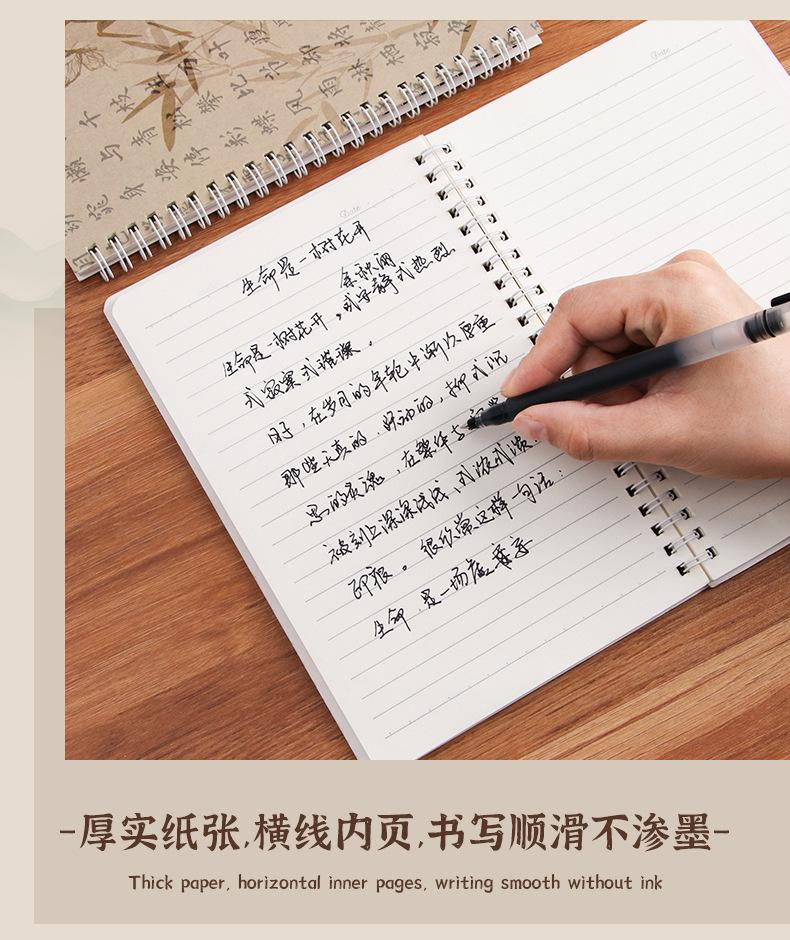 Date
Date
生命是一树花开
余秋雨
生命是一树花开，或安静或热烈
或寂寞或璀璨。
日子，在岁月的年轮中渐次厚重
那些天真的、跃动的，抑或沉
思的灵魂，在繁华与
被刻上深深浅浅、或浓或淡
印痕。很欣赏这样一句话：
生命，是一场虚妄
-厚实纸张,横线内页,书写顺滑不渗墨-
Thick paper, horizontal inner pages, writing smooth without ink